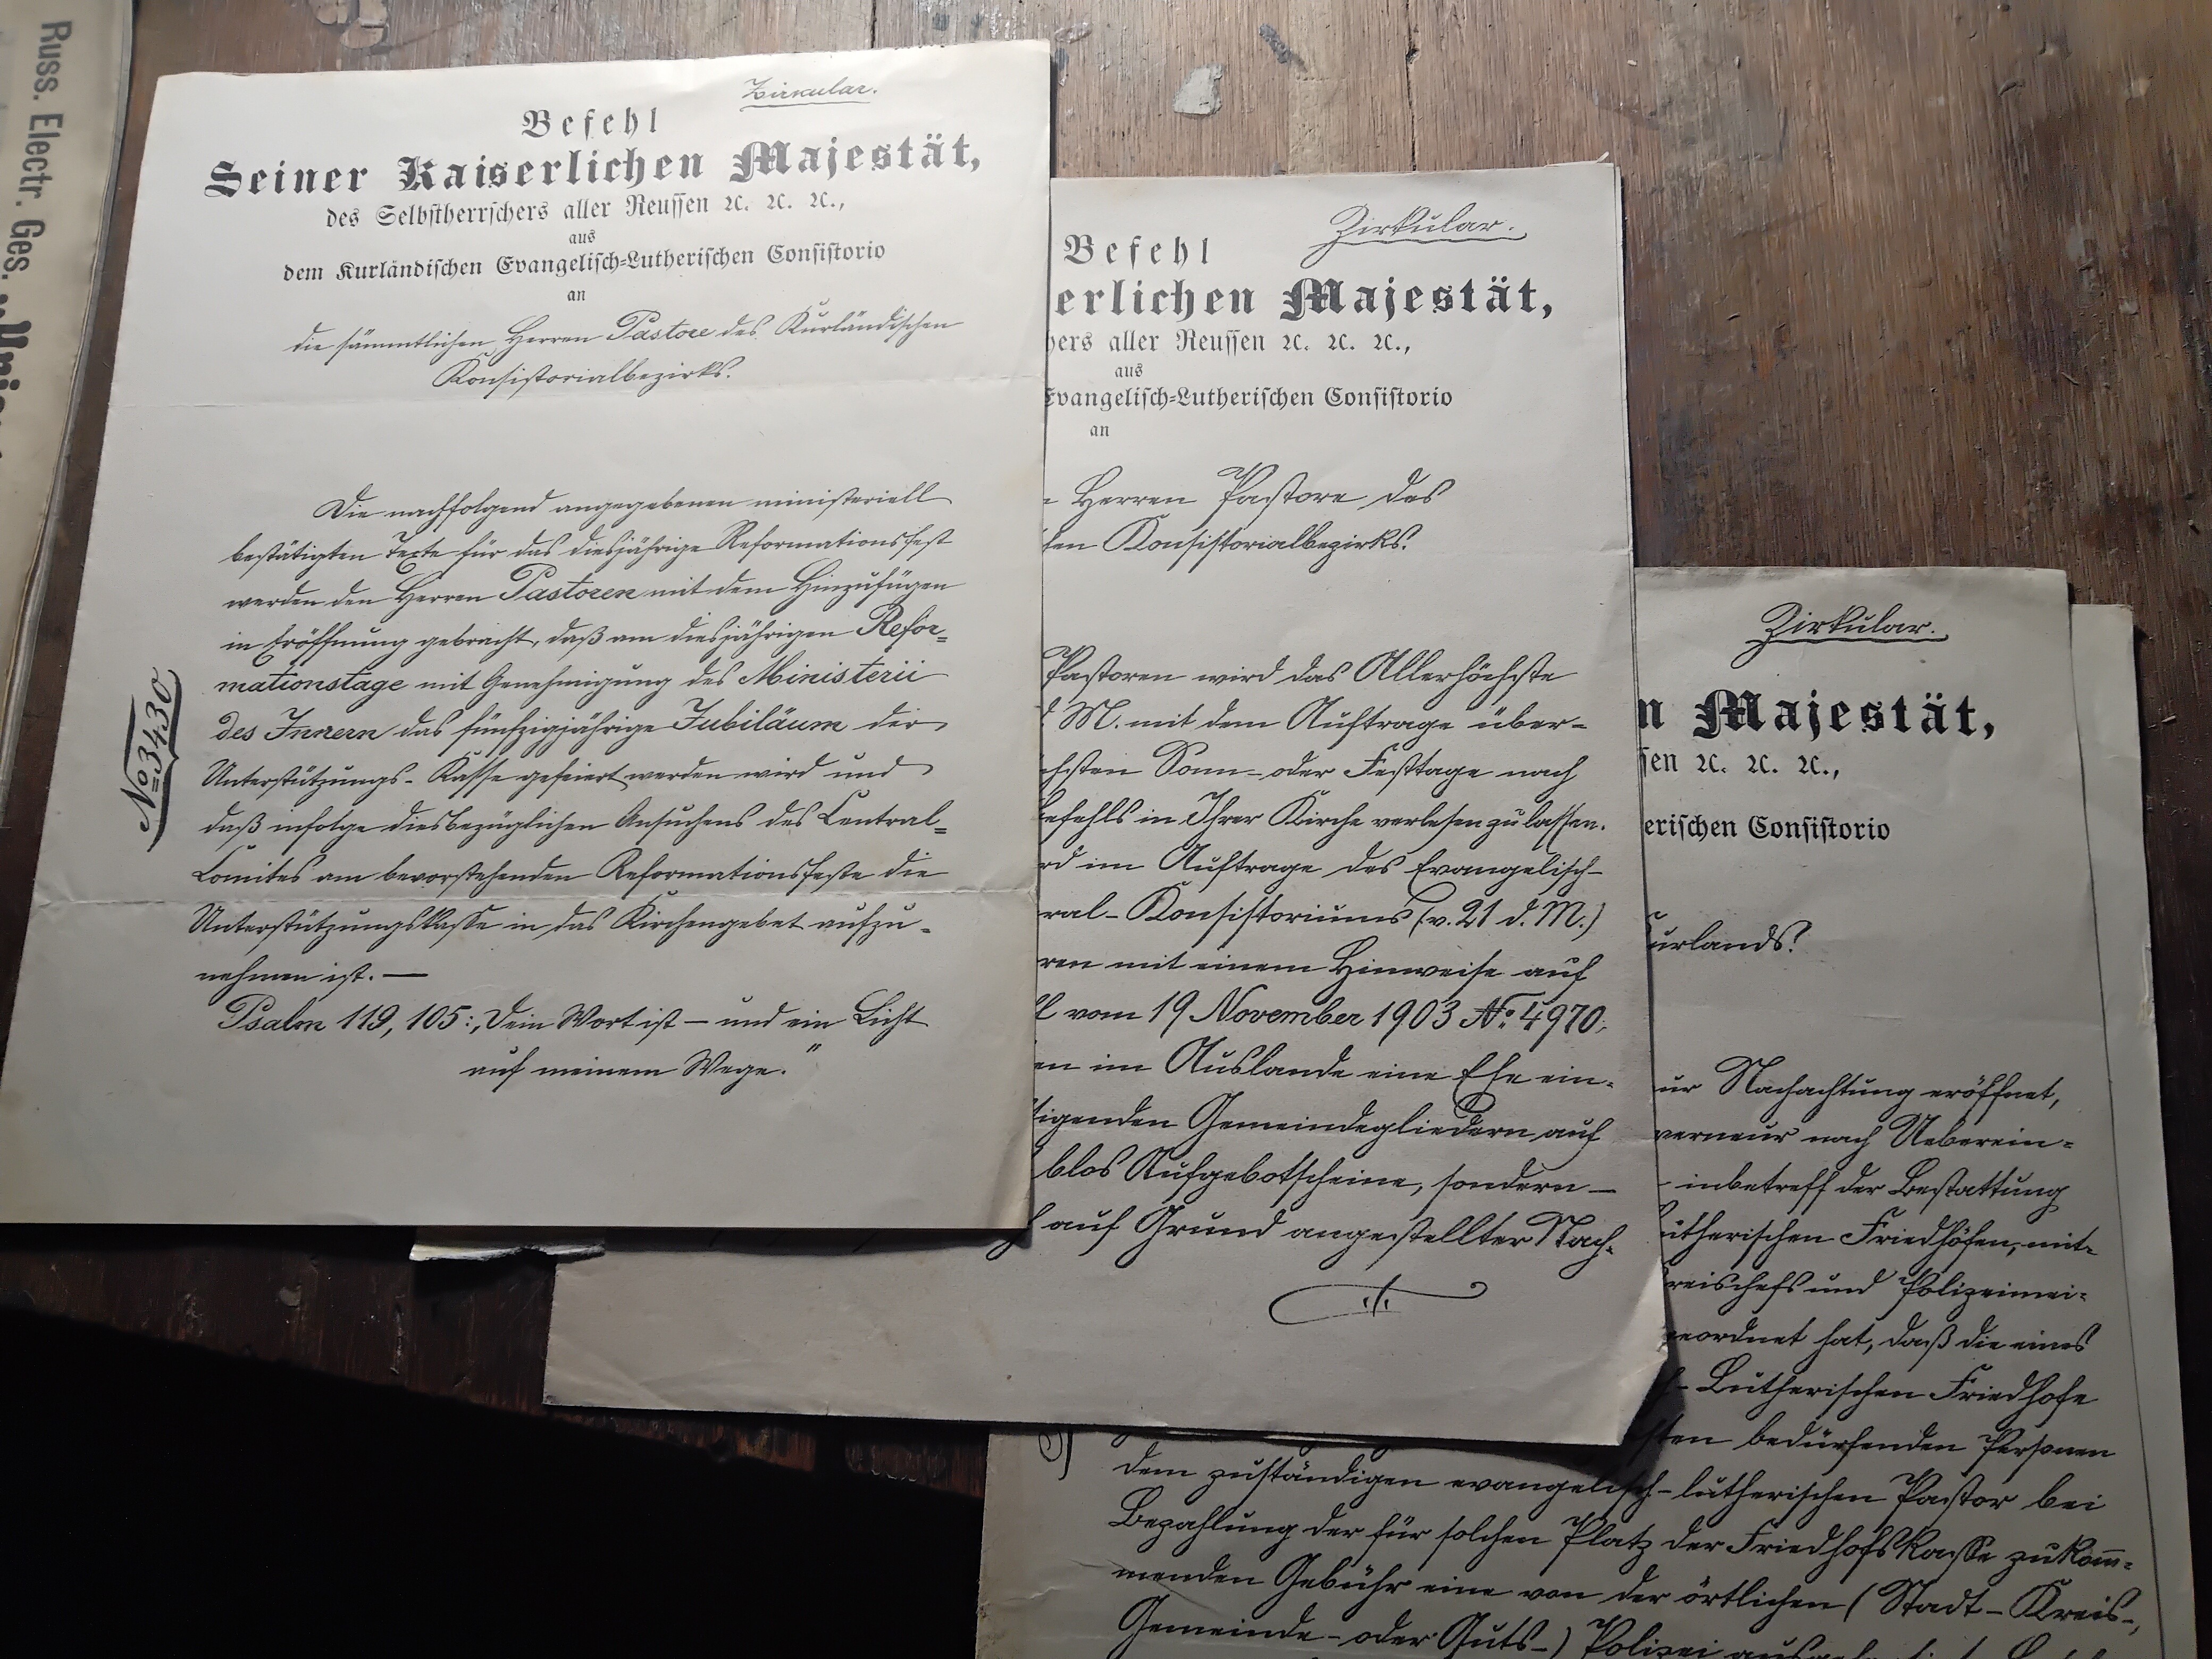 Russ. Electr. Ges. „Uni
Zirkular.
Befehl
Seiner Kaiserlichen Majestät,
des Selbstherrschers aller Reussen ꝛc. ꝛc. ꝛc.,
aus
dem Kurländischen Evangelisch-Lutherischen Consistorio
an
die sämmtlichen Herren Pastore des Kurländischen
Konsistorialbezirks.
Die nachfolgend angegebenen ministeriell
bestätigten Texte für das diesjährige Reformationsfest
werden den Herren Pastoren mit dem Hinzufügen
in Eröffnung gebracht, daß am diesjährigen Refor-
mationstage mit Genehmigung des Ministerii
des Innern das fünfzigjährige Jubiläum der
Unterstützungs-Kasse gefeiert werden wird und
daß infolge diesbezüglichen Ansuchens des Central-
Comites am bevorstehenden Reformationsfeste die
Unterstützungskasse in das Kirchengebet aufzu-
nehmen ist. —
Psalm 119, 105: „Dein Wort ist — und ein Licht
auf meinem Wege."
No 3430
Zirkular.
Befehl
erlichen Majestät,
hers aller Reussen ꝛc. ꝛc. ꝛc.,
aus
Evangelisch-Lutherischen Consistorio
an
Herren Pastore des
en Konsistorialbezirks.
Pastoren wird das Allerhöchste
M. mit dem Auftrage über-
chsten Sonn- oder Festtage nach
Befehls in Ihrer Kirche verlesen zu lassen.
rd im Auftrage des Evangelisch-
ral-Konsistoriums (v. 21 d. M.)
ren mit einem Hinweise auf
l vom 19 November 1903 No 4970,
en im Auslande eine Ehe ein-
tigenden Gemeindegliedern auf
blos Aufgebotscheine, sondern
auf Grund angestellter Nach-
Zirkular.
n Majestät,
sen ꝛc. ꝛc. ꝛc.,
erischen Consistorio
urlands.
ur Nachachtung eröffnet,
verneur nach Ueberein-
inbetreff der Bestattung
utherischen Friedhöfen, mit-
reischefs und Polizeimei-
eordnet hat, daß die eines
Lutherischen Friedhofe
sten bedürfenden Personen
dem zuständigen evangelisch-lutherischen Pastor bei
Bezahlung der für solchen Platz der Friedhofskasse zukom-
menden Gebühr eine von der örtlichen (Stadt-Kreis-,
Gemeinde- oder Guts-) Polizei